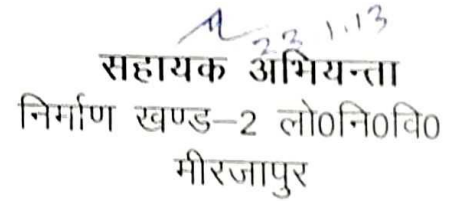 22.1.13
सहायक अभियन्ता
निर्माण खण्ड–2 लो0नि0वि0
मीरजापुर